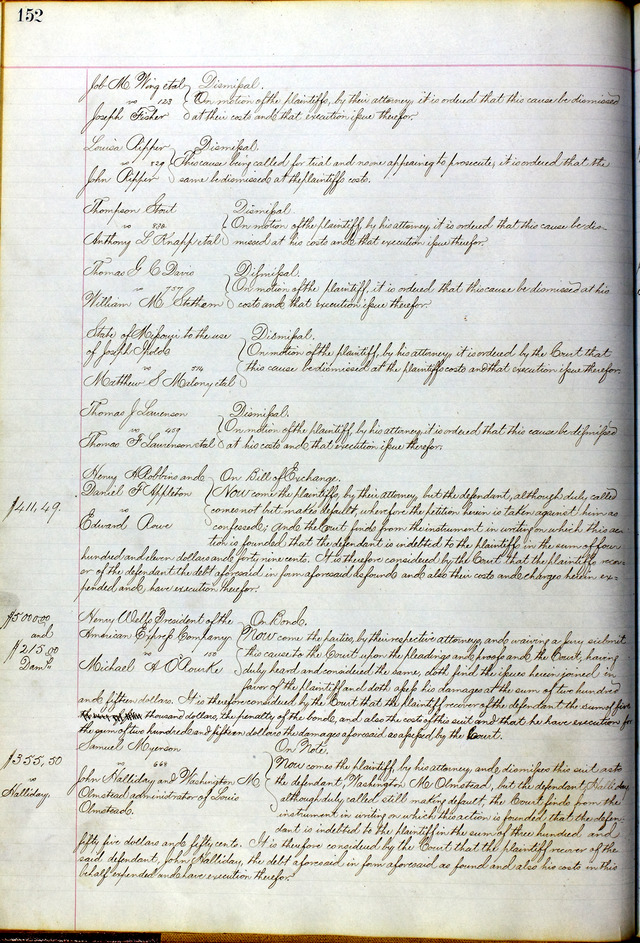 152
Job M. Wing et al } Dismissal.
vs 123 } On motion of the plaintiffs, by their attorney, it is ordered that this cause be dismissed
Joseph Fisher } at their costs and that execution issue therefor.
Louisa Pepper } Dismissal.
vs 329 } This cause being called for trial and none appearing to prosecute, it is ordered that the
John Pepper } same be dismissed at the plaintiffs costs.
Thompson Stout } Dismissal
vs } On motion of the plaintiff, by his attorney, it is ordered that this cause be dis-
Anthony L Knapp et al } missed at his costs and that execution issue therefor.
Thomas G C Davis } Dismissal.
vs 757 } On motion of the plaintiff, it is ordered that this cause be dismissed at his
William M } costs and that execution issue therefor.
State of Missouri to the use } Dismissal.
of Joseph } On motion of the plaintiff, by his attorney, it is ordered by the Court that
vs 774 } this cause be dismissed at the plaintiffs costs and that execution issue therefor.
Matthew S Melony et al
Thomas J Lavenson } Dismissal.
vs 459 } On motion of the plaintiff, by his attorney, it is ordered that this cause be dismissed
Thomas F Lavenson et al } at his costs and that execution issue therefor.
Henry A Robbins and } On Bill of Exchange.
Daniel F Appleton } Now come the plaintiffs, by their attorney, but the defendant, although duly called
$411,49. vs } comes not but makes default, wherefore the petition herein is taken against him as
Edward Rowe } confessed; and the Court finds from the instrument in writing on which this ac-
tion is founded, that the defendant is indebted to the plaintiffs in the sum of four
hundred and eleven dollars and forty nine cents. It is therefore considered by the Court that the plaintiffs recov-
er of the defendant the debt aforesaid in form aforesaid as found and also their costs and charges herein ex-
pended, and have execution therefor.
$5000.00 Henry Wells President of the } On Bond.
and American Express Company } Now come the parties, by their respective attorneys, and waiving a jury submit
$215.00 vs 150 } this cause to the Court upon the pleadings and proofs and the Court, having
Dam's Michael A O'Rourke } duly heard and considered the same, doth find the issues herein joined in
favor of the plaintiff and doth assess his damages at the sum of two hundred
and fifteen dollars. It is therefore considered by the Court that the plaintiff recover of the defendant the sum of five
thousand dollars, the penalty of the bond, and also the costs of this suit and that he have execution for
the sum of two hundred and fifteen dollars the damages aforesaid as assessed by the Court.
Samuel Myerson } On Note.
$355,50 vs 668 } Now comes the plaintiff, by his attorney, and dismisses this suit as to
vs John Halliday and Washington M } the defendant, Washington M. Olmstead, but the defendant, Halliday
Halliday. Olmstead administrator of Louis } although duly called still making default, the Court finds from the
Olmstead. } instrument in writing on which this action is founded, that the defen-
dant is indebted to the plaintiff in the sum of three hundred and
fifty five dollars and fifty cents. It is therefore considered by the Court that the plaintiff recover of the
said defendant, John Halliday, the debt aforesaid in form aforesaid as found and also his costs in this
behalf expended and have execution therefor.